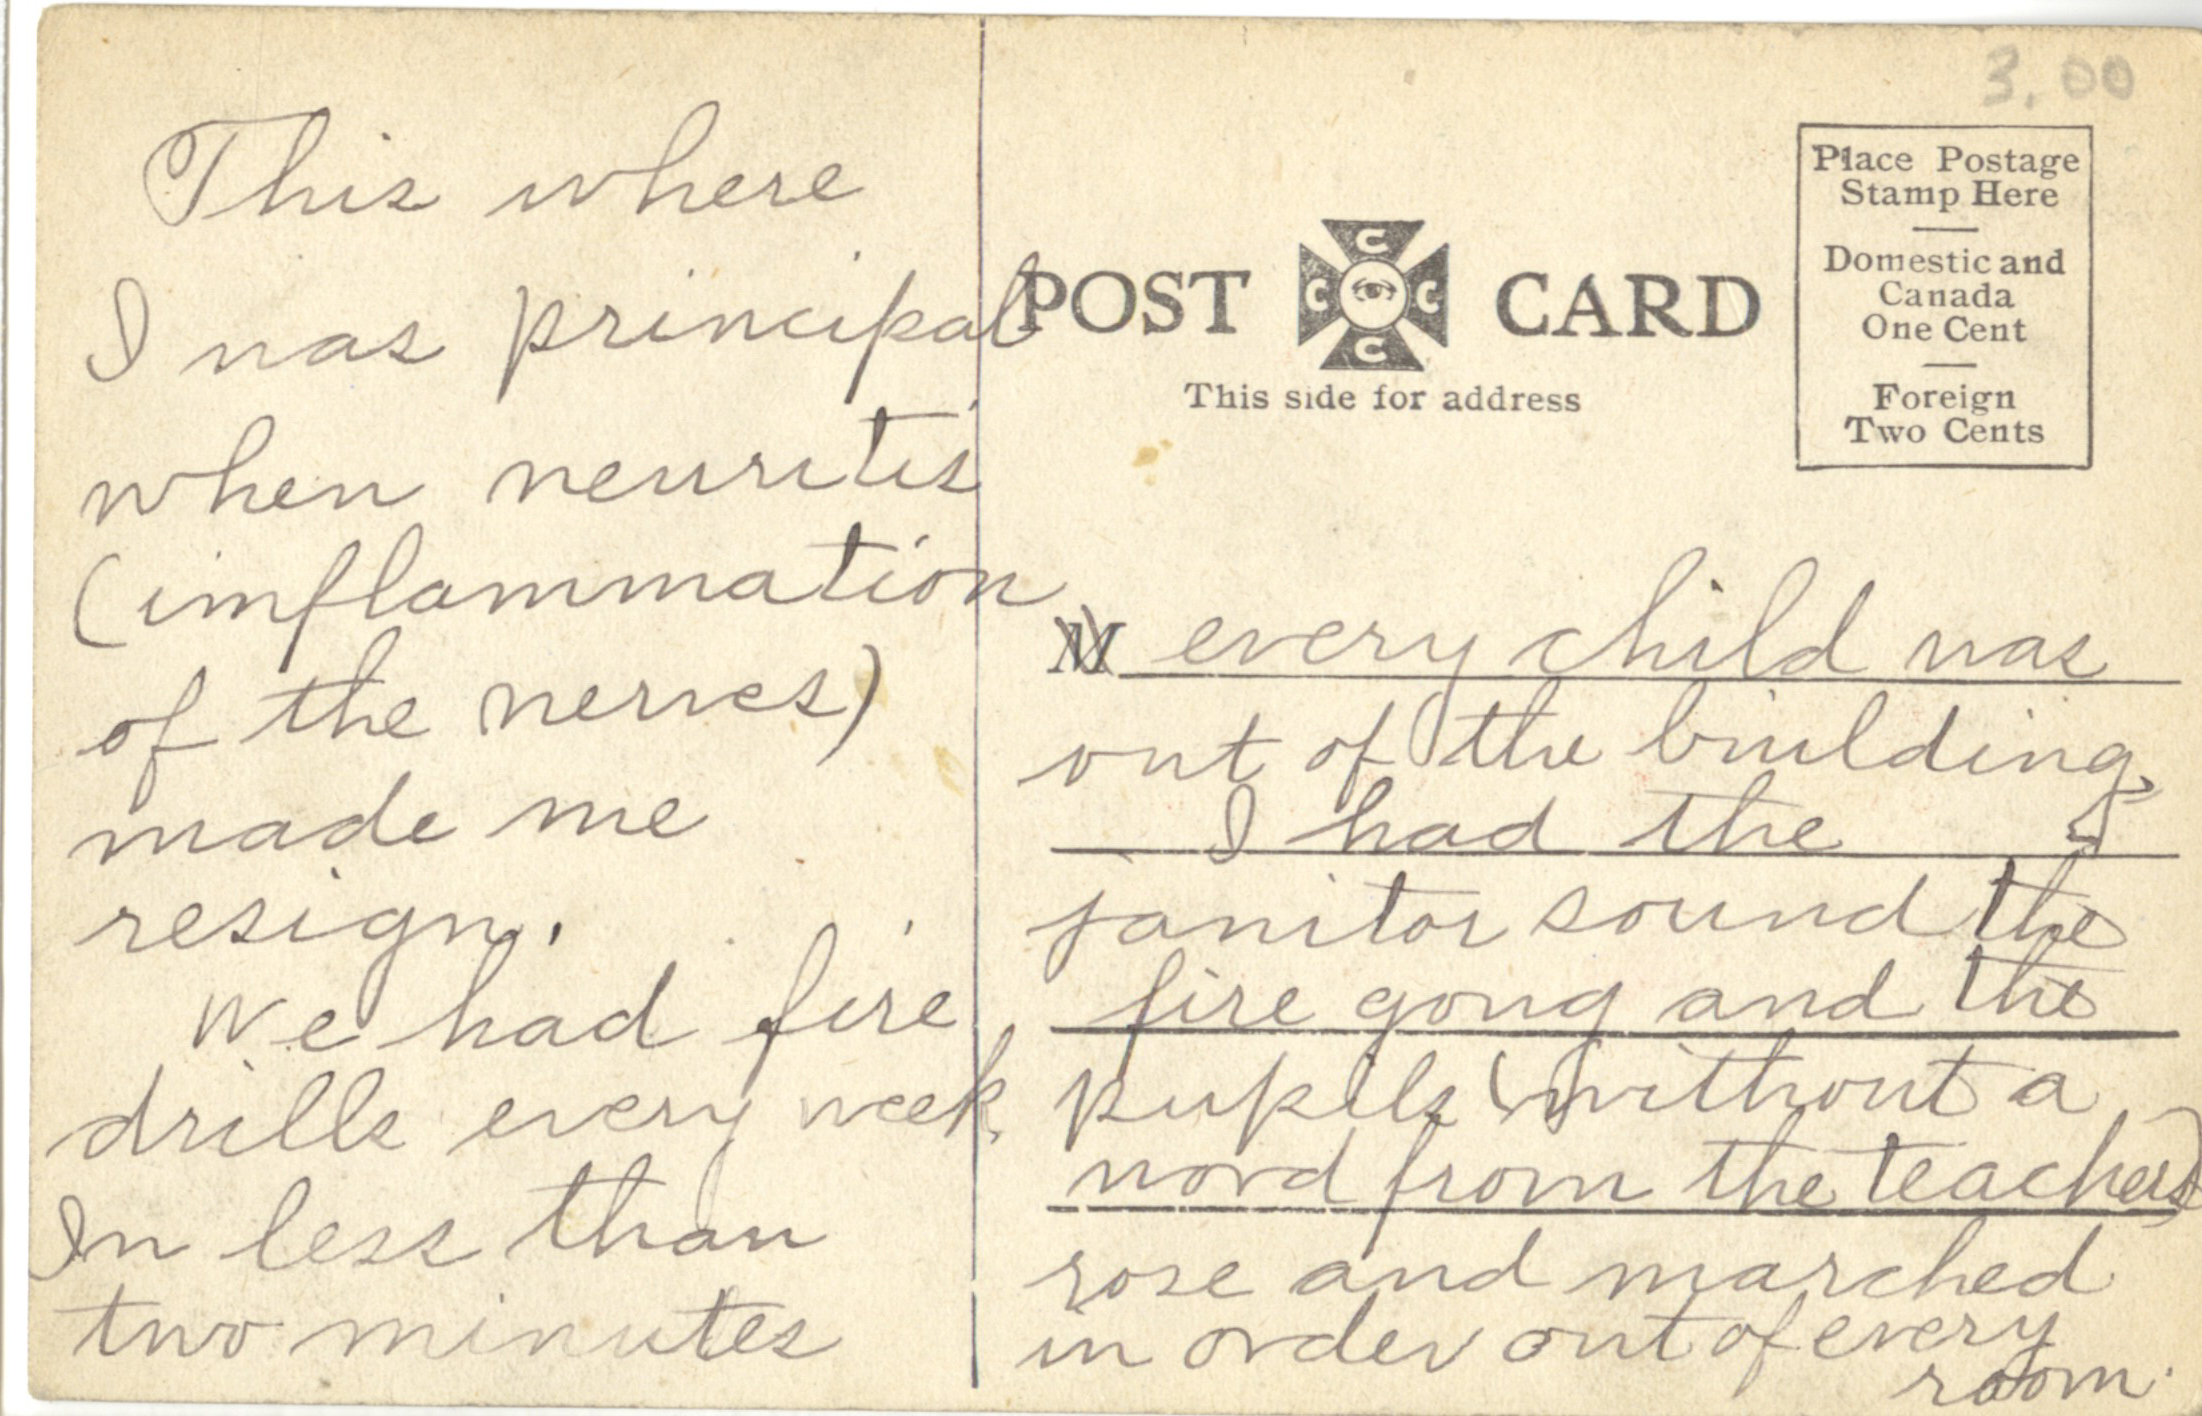 This where
I was principal
when neuritis
(imflammation
of the nerves)
made me
resign.
We had fire
drills every week.
In less than
two minutes
3.00
Place Postage
Stamp Here
Domestic and
Canada
One Cent
Foreign
Two Cents
POST CARD
C
C C
C
This side for address
M every child was
out of the building.
I had the
janitor sound the
fire gong and the
pupils (without a
word from the teachers)
rose and marched
in order out of every
room.